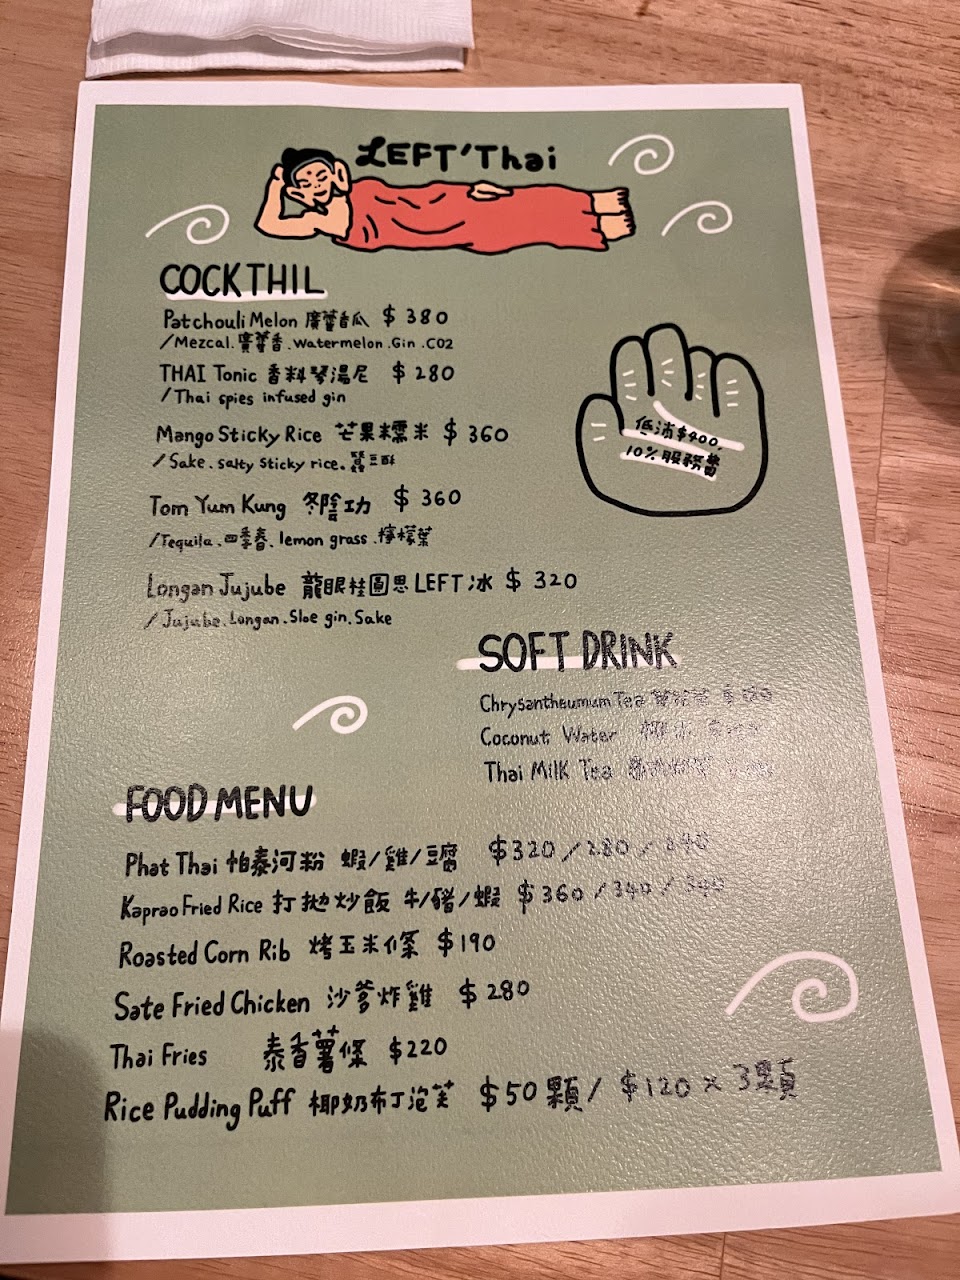 LEFT'Thai
COCKTHIL
Patchouli Melon 廣藿香瓜 $380
/Mezcal.廣藿香.Watermelon.Gin.CO2
THAI Tonic 香料琴湯尼 $280
/Thai spies infused gin
Mango Sticky Rice 芒果糯米 $360
/Sake.salty sticky rice.蠶豆酥
Tom Yum Kung 冬陰功 $360
/Tequila.四季春.lemon grass.檸檬葉
Longan Jujube 龍眼桂圓思LEFT冰 $320
/Jujube.Longan.Sloe gin.Sake
低消$400,
10%服務費
SOFT DRINK
Chrysantheumum Tea
Coconut Water
Thai Milk Tea
FOOD MENU
Phat Thai 帕泰河粉 蝦/雞/豆腐 $320/280/240
Kaprao Fried Rice 打拋炒飯 牛/豬/蝦 $360/340/340
Roasted Corn Rib 烤玉米條 $190
Sate Fried Chicken 沙爹炸雞 $280
Thai Fries 泰香薯條 $220
Rice Pudding Puff 椰奶布丁泡芙 $50顆/ $120×3顆